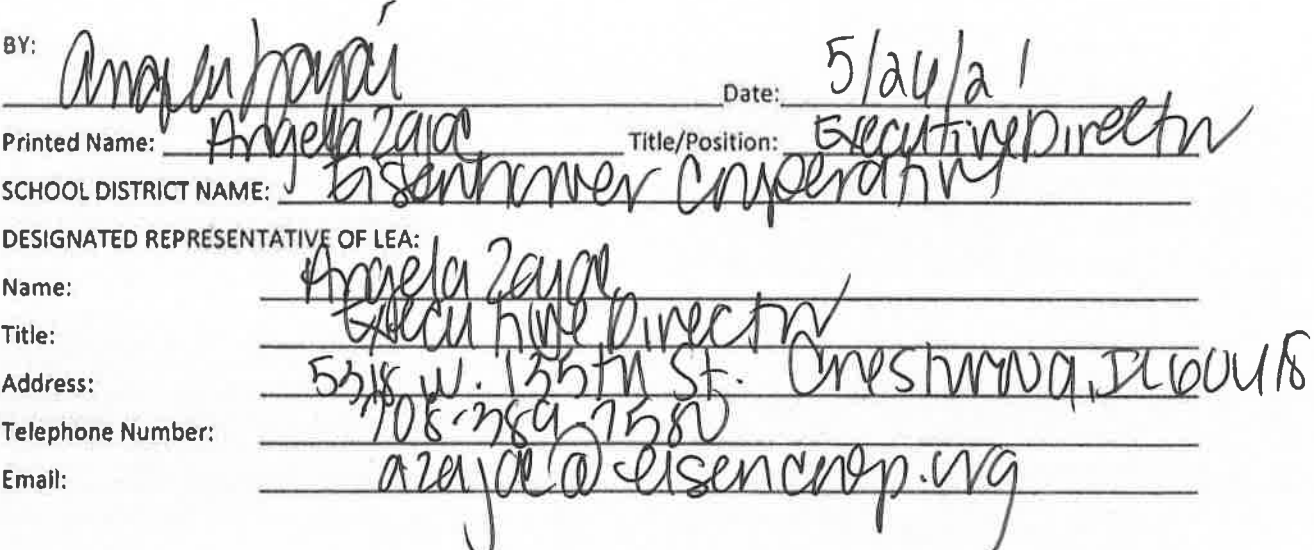 BY: Angela Zajac
Date: 5/26/21
Printed Name: Angela Zajac Title/Position: Executive Director
SCHOOL DISTRICT NAME: Eisenhower Cooperative
DESIGNATED REPRESENTATIVE OF LEA:
Name: Angela Zajac
Title: Executive Director
Address: 5318 W. 135th St. Crestwood, IL 60418
Telephone Number: 708-389-7580
Email: azajac@eisencoop.org